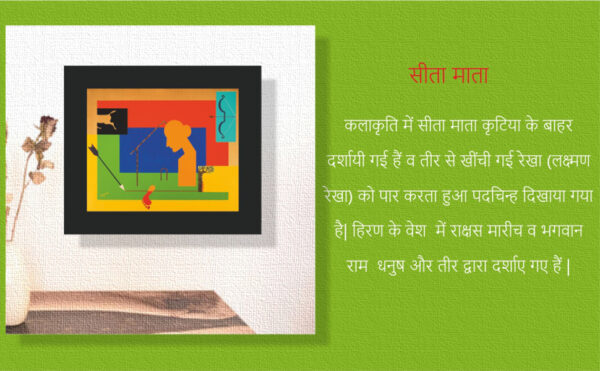 सीता माता
कलाकृति में सीता माता कुटिया के बाहर
दर्शायी गई हैं व तीर से खींची गई रेखा (लक्ष्मण
रेखा) को पार करता हुआ पदचिन्ह दिखाया गया
है| हिरण के वेश में राक्षस मारीच व भगवान
राम धनुष और तीर द्वारा दर्शाए गए हैं |